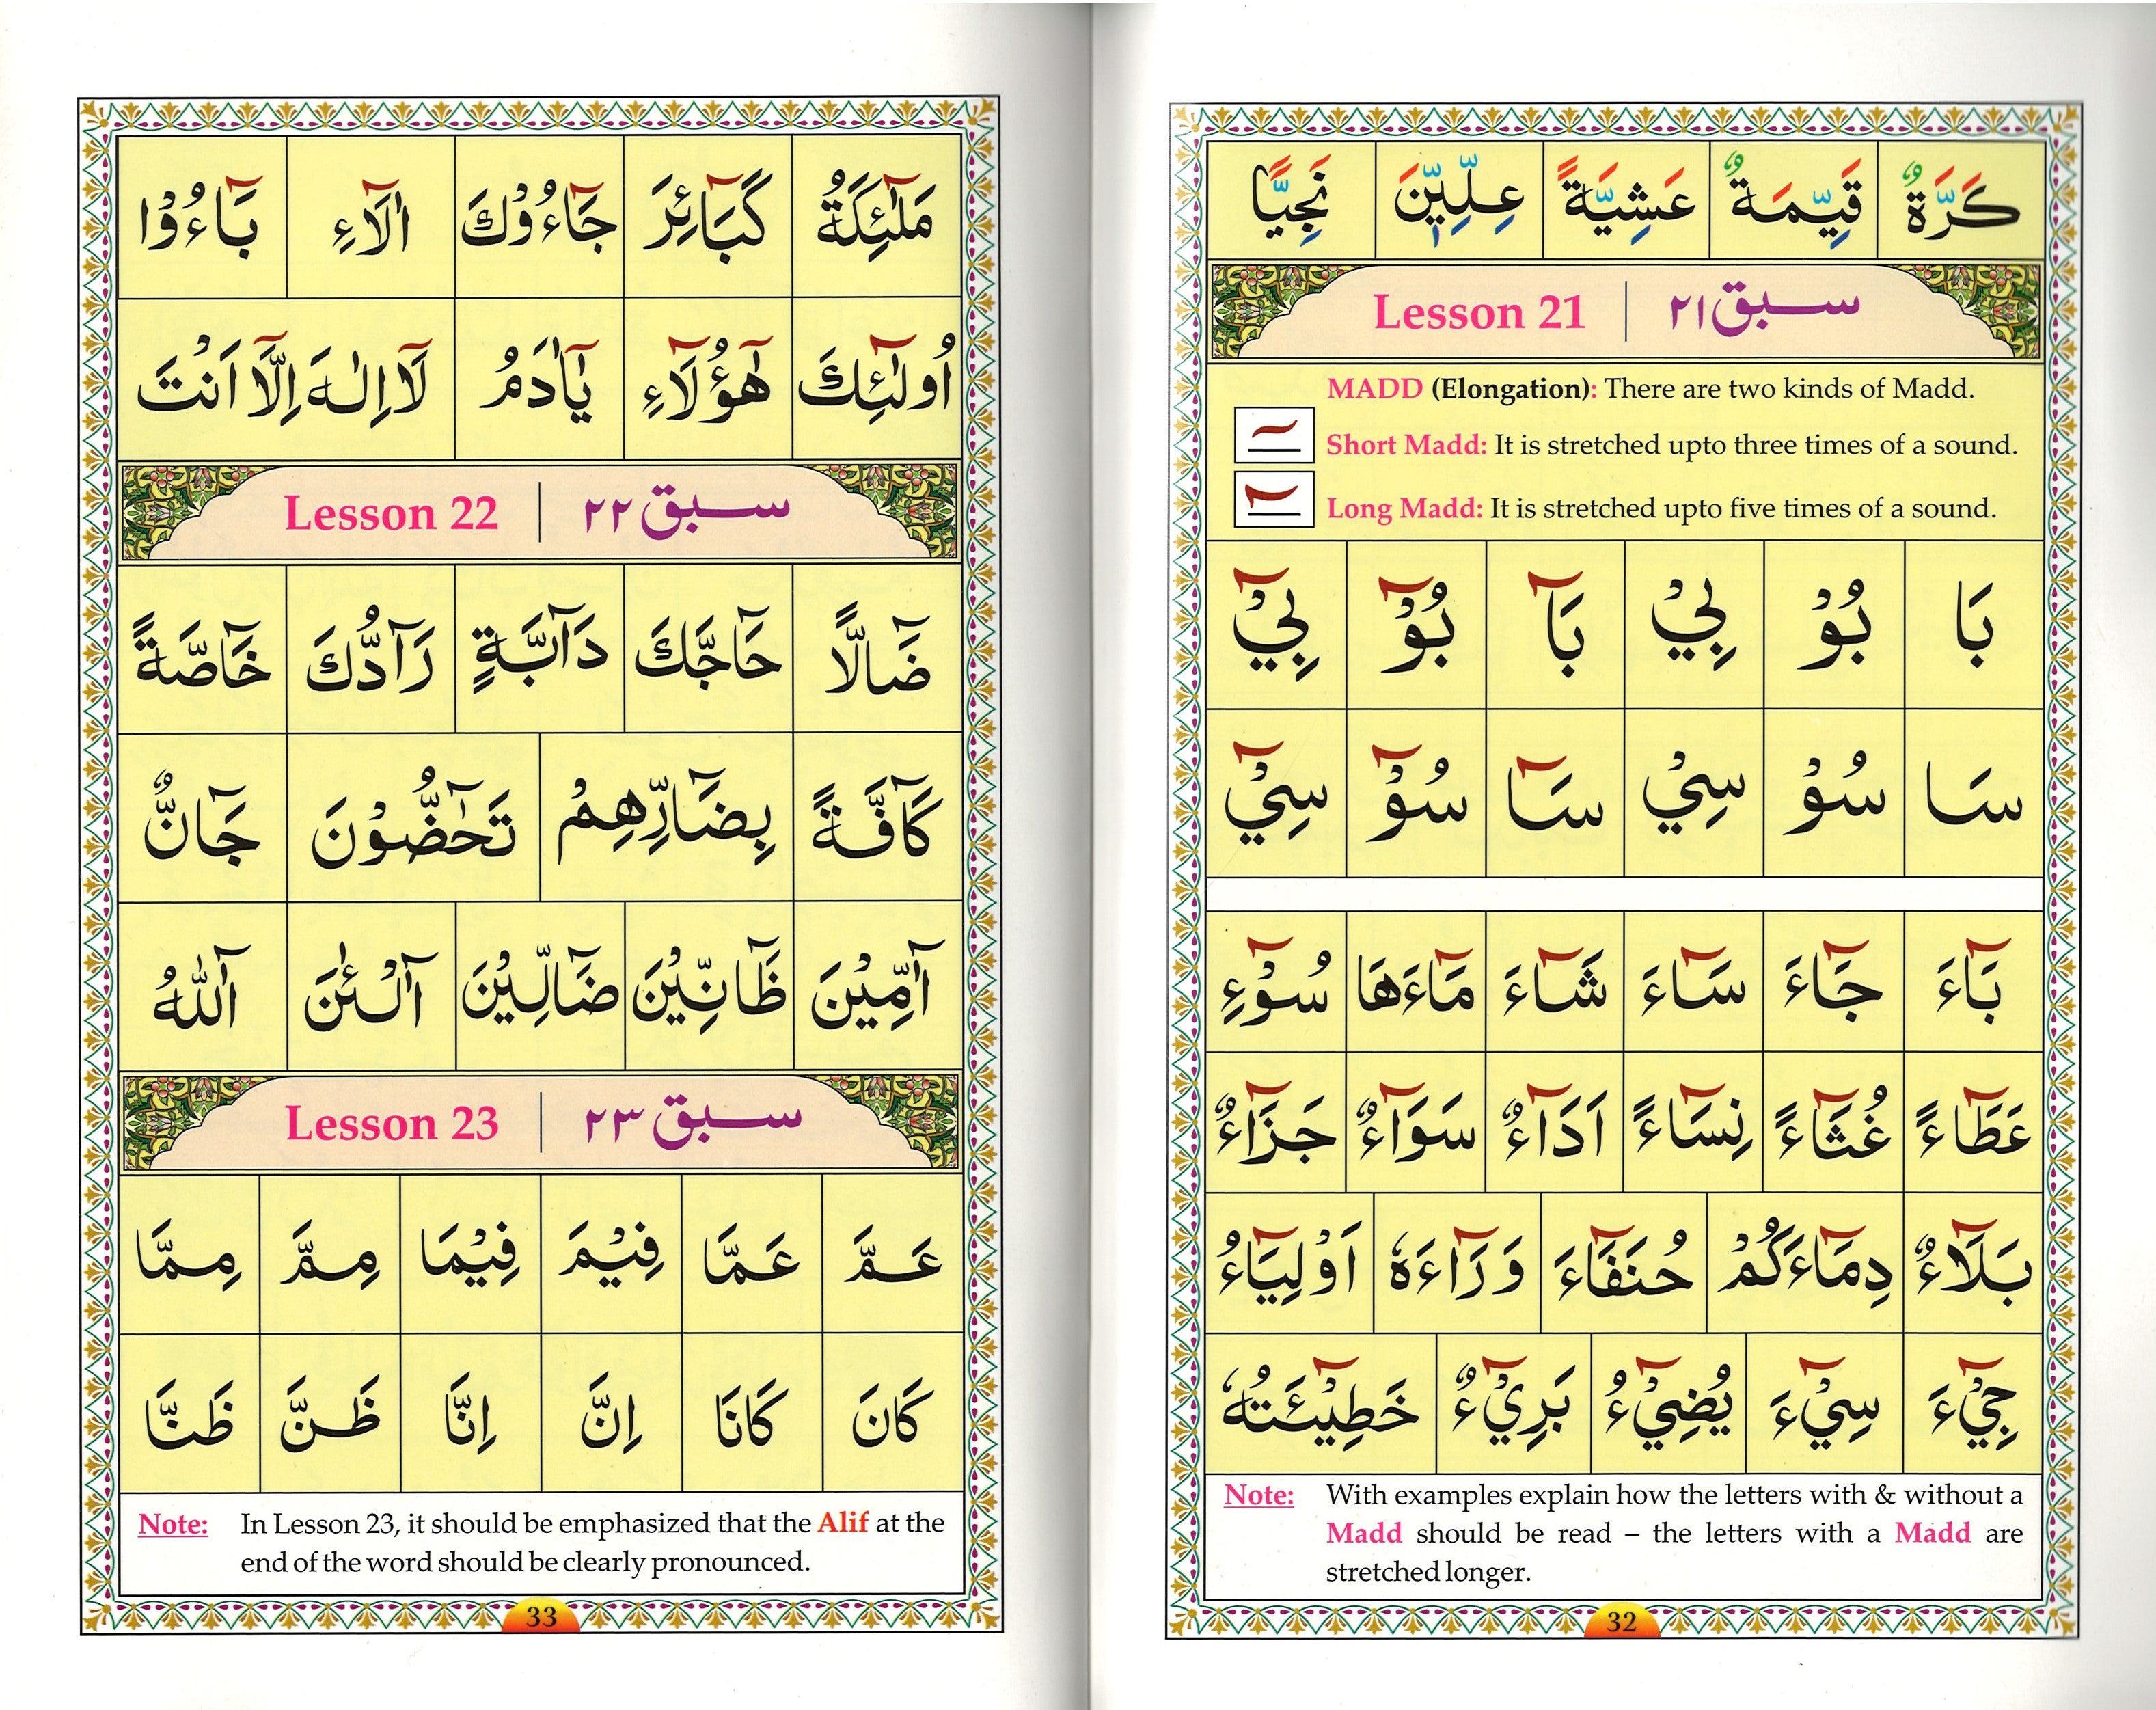 كَرَّةٌ قَيِّمَةٌ عَشِيَّةً عِلِّيِّيْنَ نَجِيًّا
Lesson 21 | سبق ۲۱
MADD (Elongation): There are two kinds of Madd.
Short Madd: It is stretched upto three times of a sound.
Long Madd: It is stretched upto five times of a sound.
بَا بُوْ بِيْ بَآ بُوْٓ بِيْٓ
سَا سُوْ سِيْ سَآ سُوْٓ سِيْٓ
بَآءَ جَآءَ سَآءَ شَآءَ مَآءَهَا سُوْٓءِ
عَطَآءً غُثَآءً نِسَآءً اَدَآءٌ سَوَآءٌ جَزَآءٌ
بَلَآءٌ دِمَآءَكُمْ حُنَفَآءَ وَرَآءَهٗ اَوْلِيَآءُ
جِيْٓءَ سِيْٓءَ يُضِيْٓءُ بَرِيْٓءٌ خَطِيْٓئَتُهٗ
Note: With examples explain how the letters with & without a
Madd should be read – the letters with a Madd are
stretched longer.
32
مَلٰٓئِكَةُ كَبَآئِرَ جَآءُوْكَ اٰلَآءِ بَآءُوْا
اُولٰٓئِكَ هٰٓؤُلَآءِ يٰٓاٰدَمُ لَآ اِلٰهَ اِلَّآ اَنْتَ
Lesson 22 | سبق ۲۲
ضَآلًّا حَآجَّكَ دَآبَّةٍ رَآدُّكَ خَآصَّةً
كَآفَّةً بِضَآرِّهِمْ تَحٰٓضُّوْنَ جَآنٌّ
آٰمِّيْنَ ظَآنِّيْنَ ضَآلِّيْنَ آٰلْـٰٔنَ آٰللّٰهُ
Lesson 23 | سبق ۲۳
عَمَّ عَمَّا فِيْمَ فِيْمَا مِمَّ مِمَّا
كَانَ كَانَا اِنَّ اِنَّا ظَنَّ ظَنَّا
Note: In Lesson 23, it should be emphasized that the Alif at the
end of the word should be clearly pronounced.
33